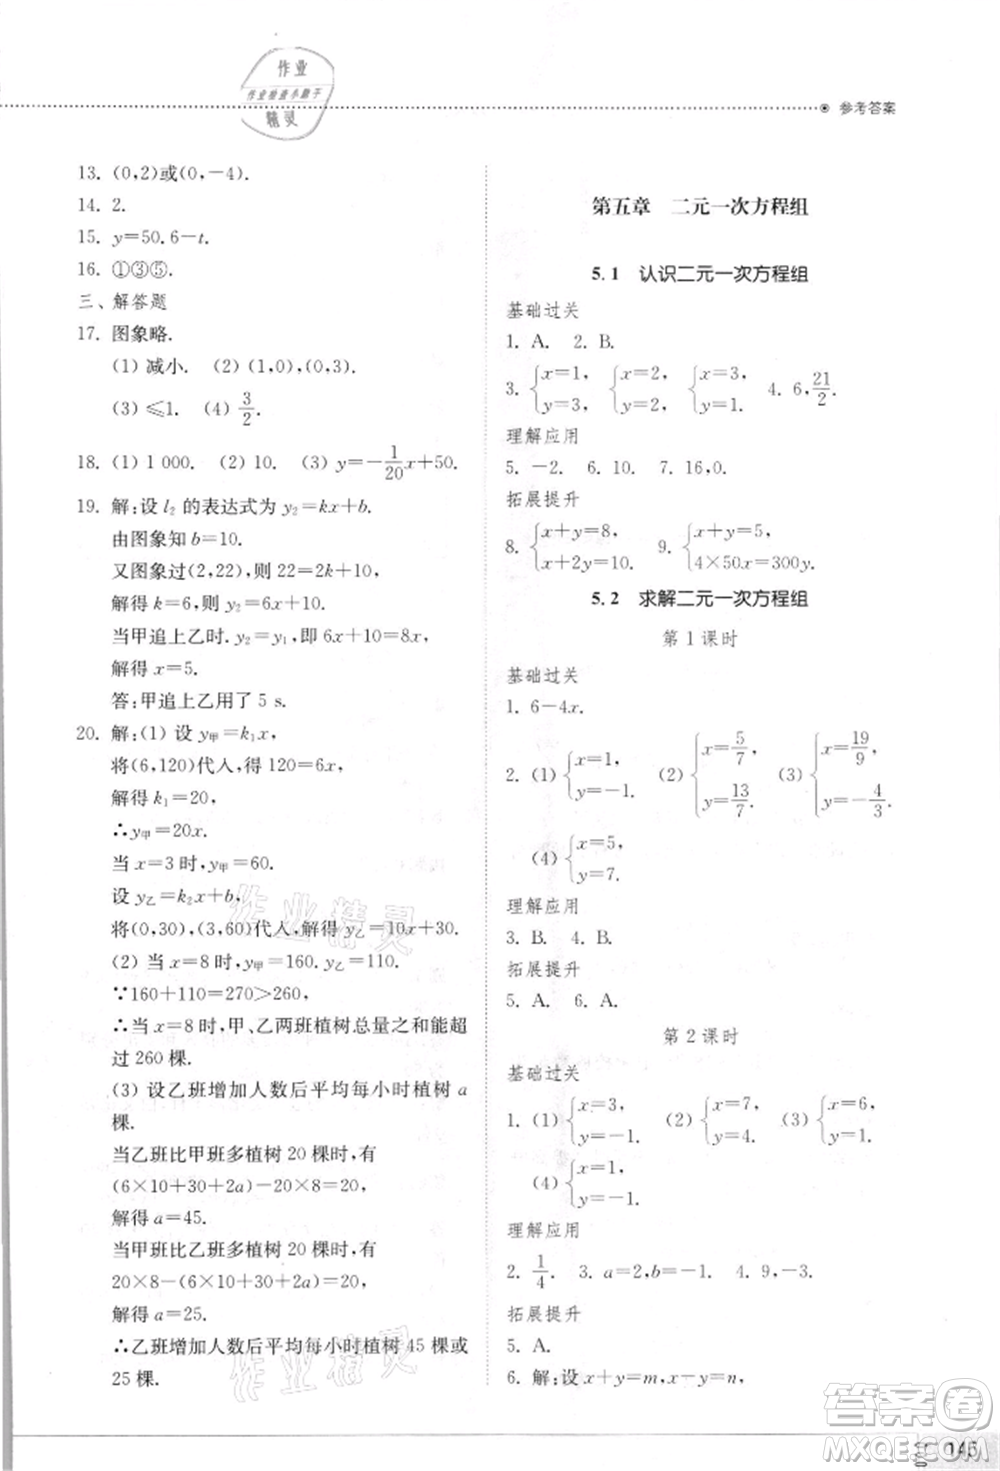 作业
作业检查小助手
精灵
参考答案
13. (0,2)或(0,-4).
14. 2.
15. y=50.6-t.
16. ①③⑤.
三、解答题
17. 图象略.
(1) 减小. (2) (1,0),(0,3)
(3) ≤1. (4) 3/2.
18. (1) 1 000. (2) 10. (3) y=-1/20x+50.
19. 解:设 l₂ 的表达式为 y₂=kx+b.
由图象知 b=10.
又图象过(2,22),则 22=2k+10,
解得 k=6,则 y₂=6x+10.
当甲追上乙时. y₂=y₁,即 6x+10=8x,
解得 x=5.
答:甲追上乙用了 5 s.
20. 解:(1) 设 y甲=k₁x,
将(6,120)代入,得120=6x,
解得 k₁=20,
∴y甲=20x.
当 x=3 时,y甲=60.
设 y乙=k₂x+b,
将(0,30),(3,60)代入,解得 y乙=10x+30.
(2) 当 x=8时,y甲=160. y乙=110.
∵160+110=270>260,
∴当 x=8 时,甲、乙两班植树总量之和能超
过 260 棵.
(3) 设乙班增加人数后平均每小时植树 a
棵.
当乙班比甲班多植树 20 棵时,有
(6×10+30+2a)-20×8=20,
解得 a=45.
当甲班比乙班多植树 20 棵时,有
20×8-(6×10+30+2a)=20,
解得 a=25.
∴乙班增加人数后平均每小时植树 45 棵或
25 棵.
第五章 二元一次方程组
5.1 认识二元一次方程组
基础过关
1. A. 2. B.
3. {x=1, y=3, {x=2, y=2, {x=3, y=1. 4. 6, 21/2.
理解应用
5. -2. 6. 10. 7. 16,0.
拓展提升
8. {x+y=8, x+2y=10. 9. {x+y=5, 4×50x=300y.
5.2 求解二元一次方程组
第 1 课时
基础过关
1. 6-4x.
2. (1) {x=1, y=-1. (2) {x=5/7, y=13/7. (3) {x=19/9, y=-4/3.
(4) {x=5, y=7.
理解应用
3. B. 4. B.
拓展提升
5. A. 6. A.
第 2 课时
基础过关
1. (1) {x=3, y=-1. (2) {x=7, y=4. (3) {x=6, y=1.
(4) {x=1, y=-1.
理解应用
2. 1/4. 3. a=2,b=-1. 4. 9,-3.
拓展提升
5. A.
6. 解:设 x+y=m,x-y=n,
作业精灵
作业精灵
答案圈
MXQE.COM
145